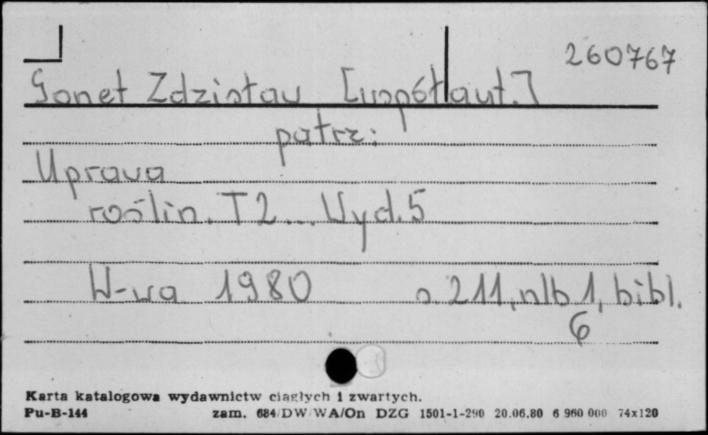 260767
Gonet Zdzisław [współaut.]
patrz:
Uprawa
roślin. T2... Wyd. 5
W-wa 1980 s. 211, nlb 1, bibl.
6
Karta katalogowa wydawnictw ciągłych i zwartych.
Pu-B-144 zam. 684/DW/WA/On DZG 1501-1-290 20.06.80 6 960 000 74x120